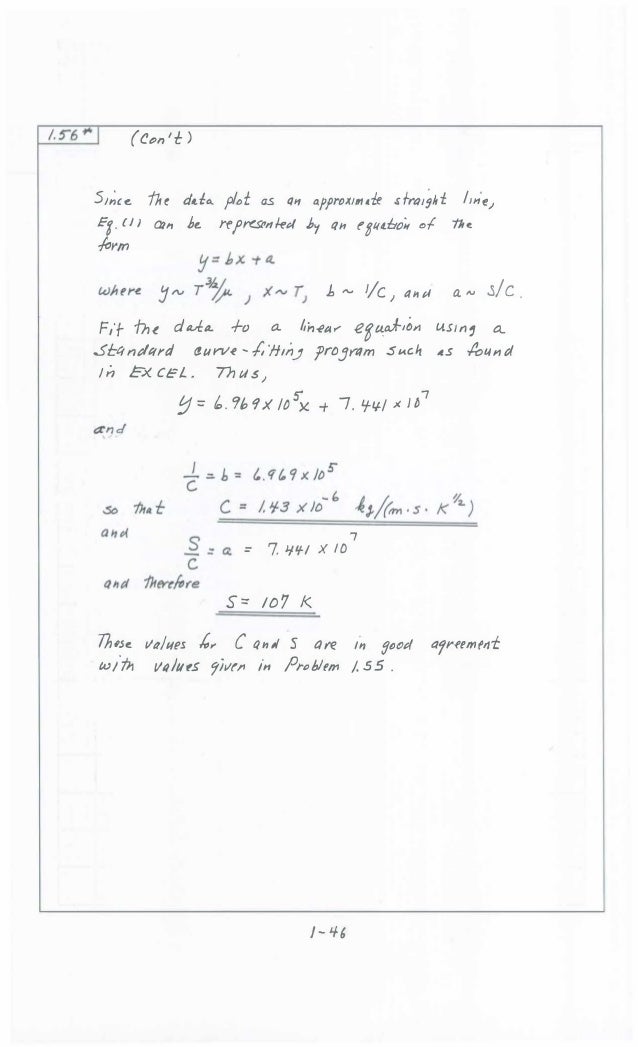 1.56* (Con't)
Since the data plot as an approximate straight line,
Eq. (1) can be represented by an equation of the
form
y = bx + a
where y ~ T^3/2/μ , x ~ T, b ~ 1/C, and a ~ S/C.
Fit the data to a linear equation using a
standard curve-fitting program such as found
in EXCEL. Thus,
y = 6.969 x 10^5 x + 7.441 x 10^7
and
1/C = b = 6.969 x 10^5
so that C = 1.43 x 10^-6 kg/(m·s·K^1/2)
and
S/C = a = 7.441 x 10^7
and therefore
S = 107 K
These values for C and S are in good agreement
with values given in Problem 1.55.
1-46